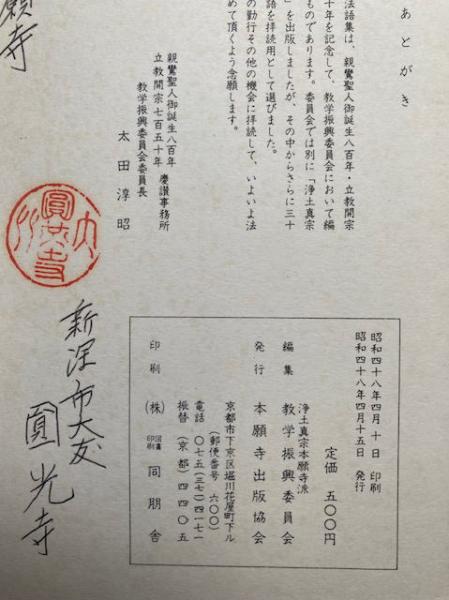 あとがき
法語集は、親鸞聖人御誕生八百年・立教開宗
十年を記念して、教学振興委員会において編
ものであります。委員会では別に「浄土真宗
」を出版しましたが、その中からさらに三十
語を拝読用として選びました。
の勤行その他の機会に拝読して、いよいよ法
めて頂くよう念願します。
親鸞聖人御誕生八百年
立教開宗七百五十年 慶讃事務所
教学振興委員会委員長
太田淳昭
願寺
圓光寺
新深市大友
圓光寺
昭和四十八年四月十日 印刷
昭和四十八年四月十五日 発行
定価 五〇〇円
浄土真宗本願寺派
編集 教学振興委員会
発行 本願寺出版協会
京都市下京区堀川花屋町下ル
(郵便番号 六〇〇)
電話 〇七五(三七一)四一七一
振替(京都)四四〇五
印刷 (株) 図書印刷 同朋舎